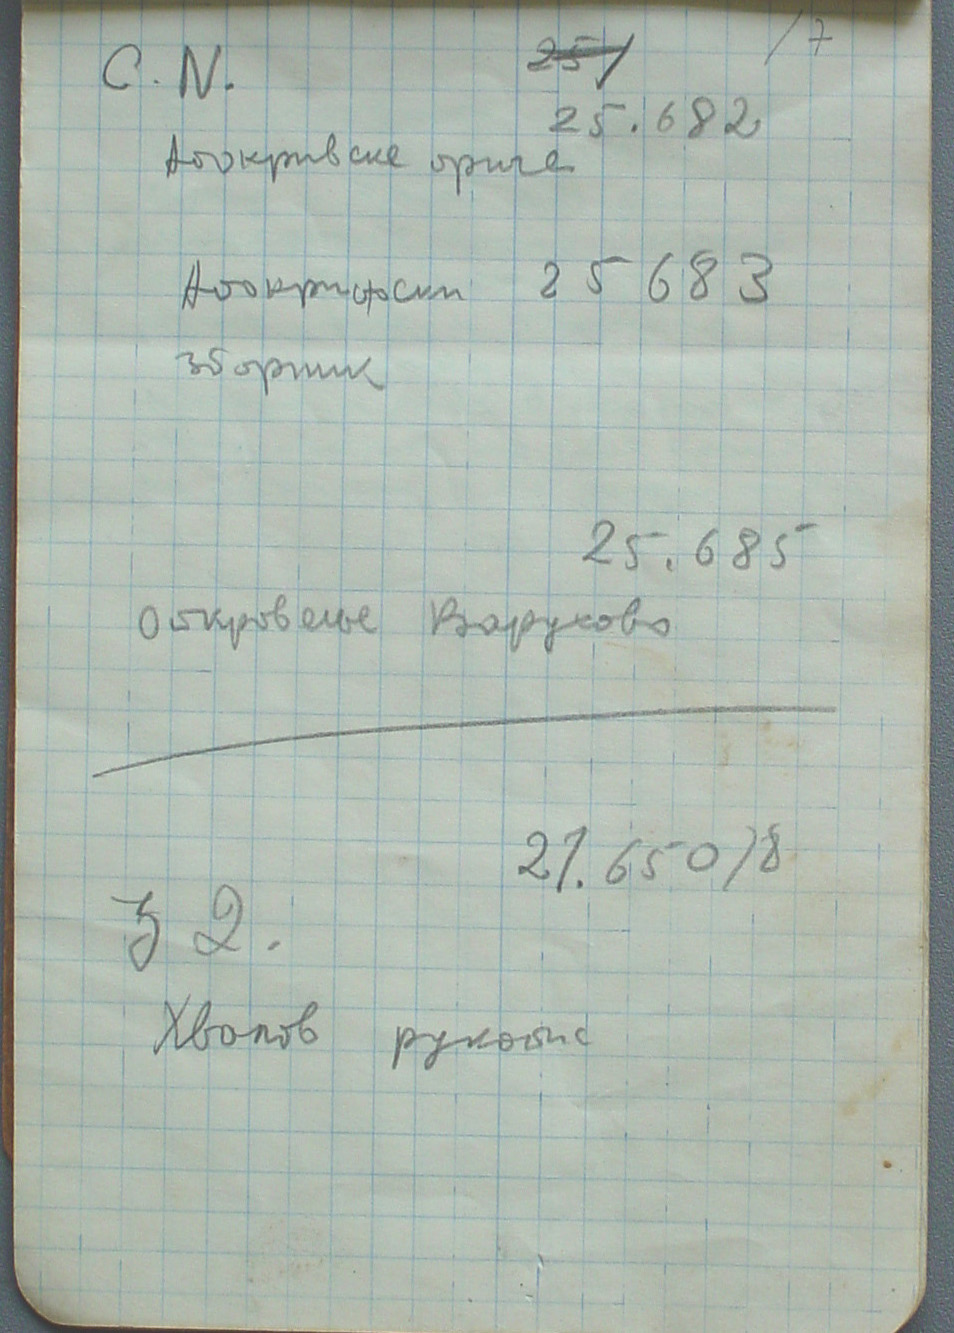 /7
C. N.
25.682
Апокривске приче
Апокрифски 25683
зборник
25.685
Откровење Варухово
21.650/8
32.
Хвалов рукопис